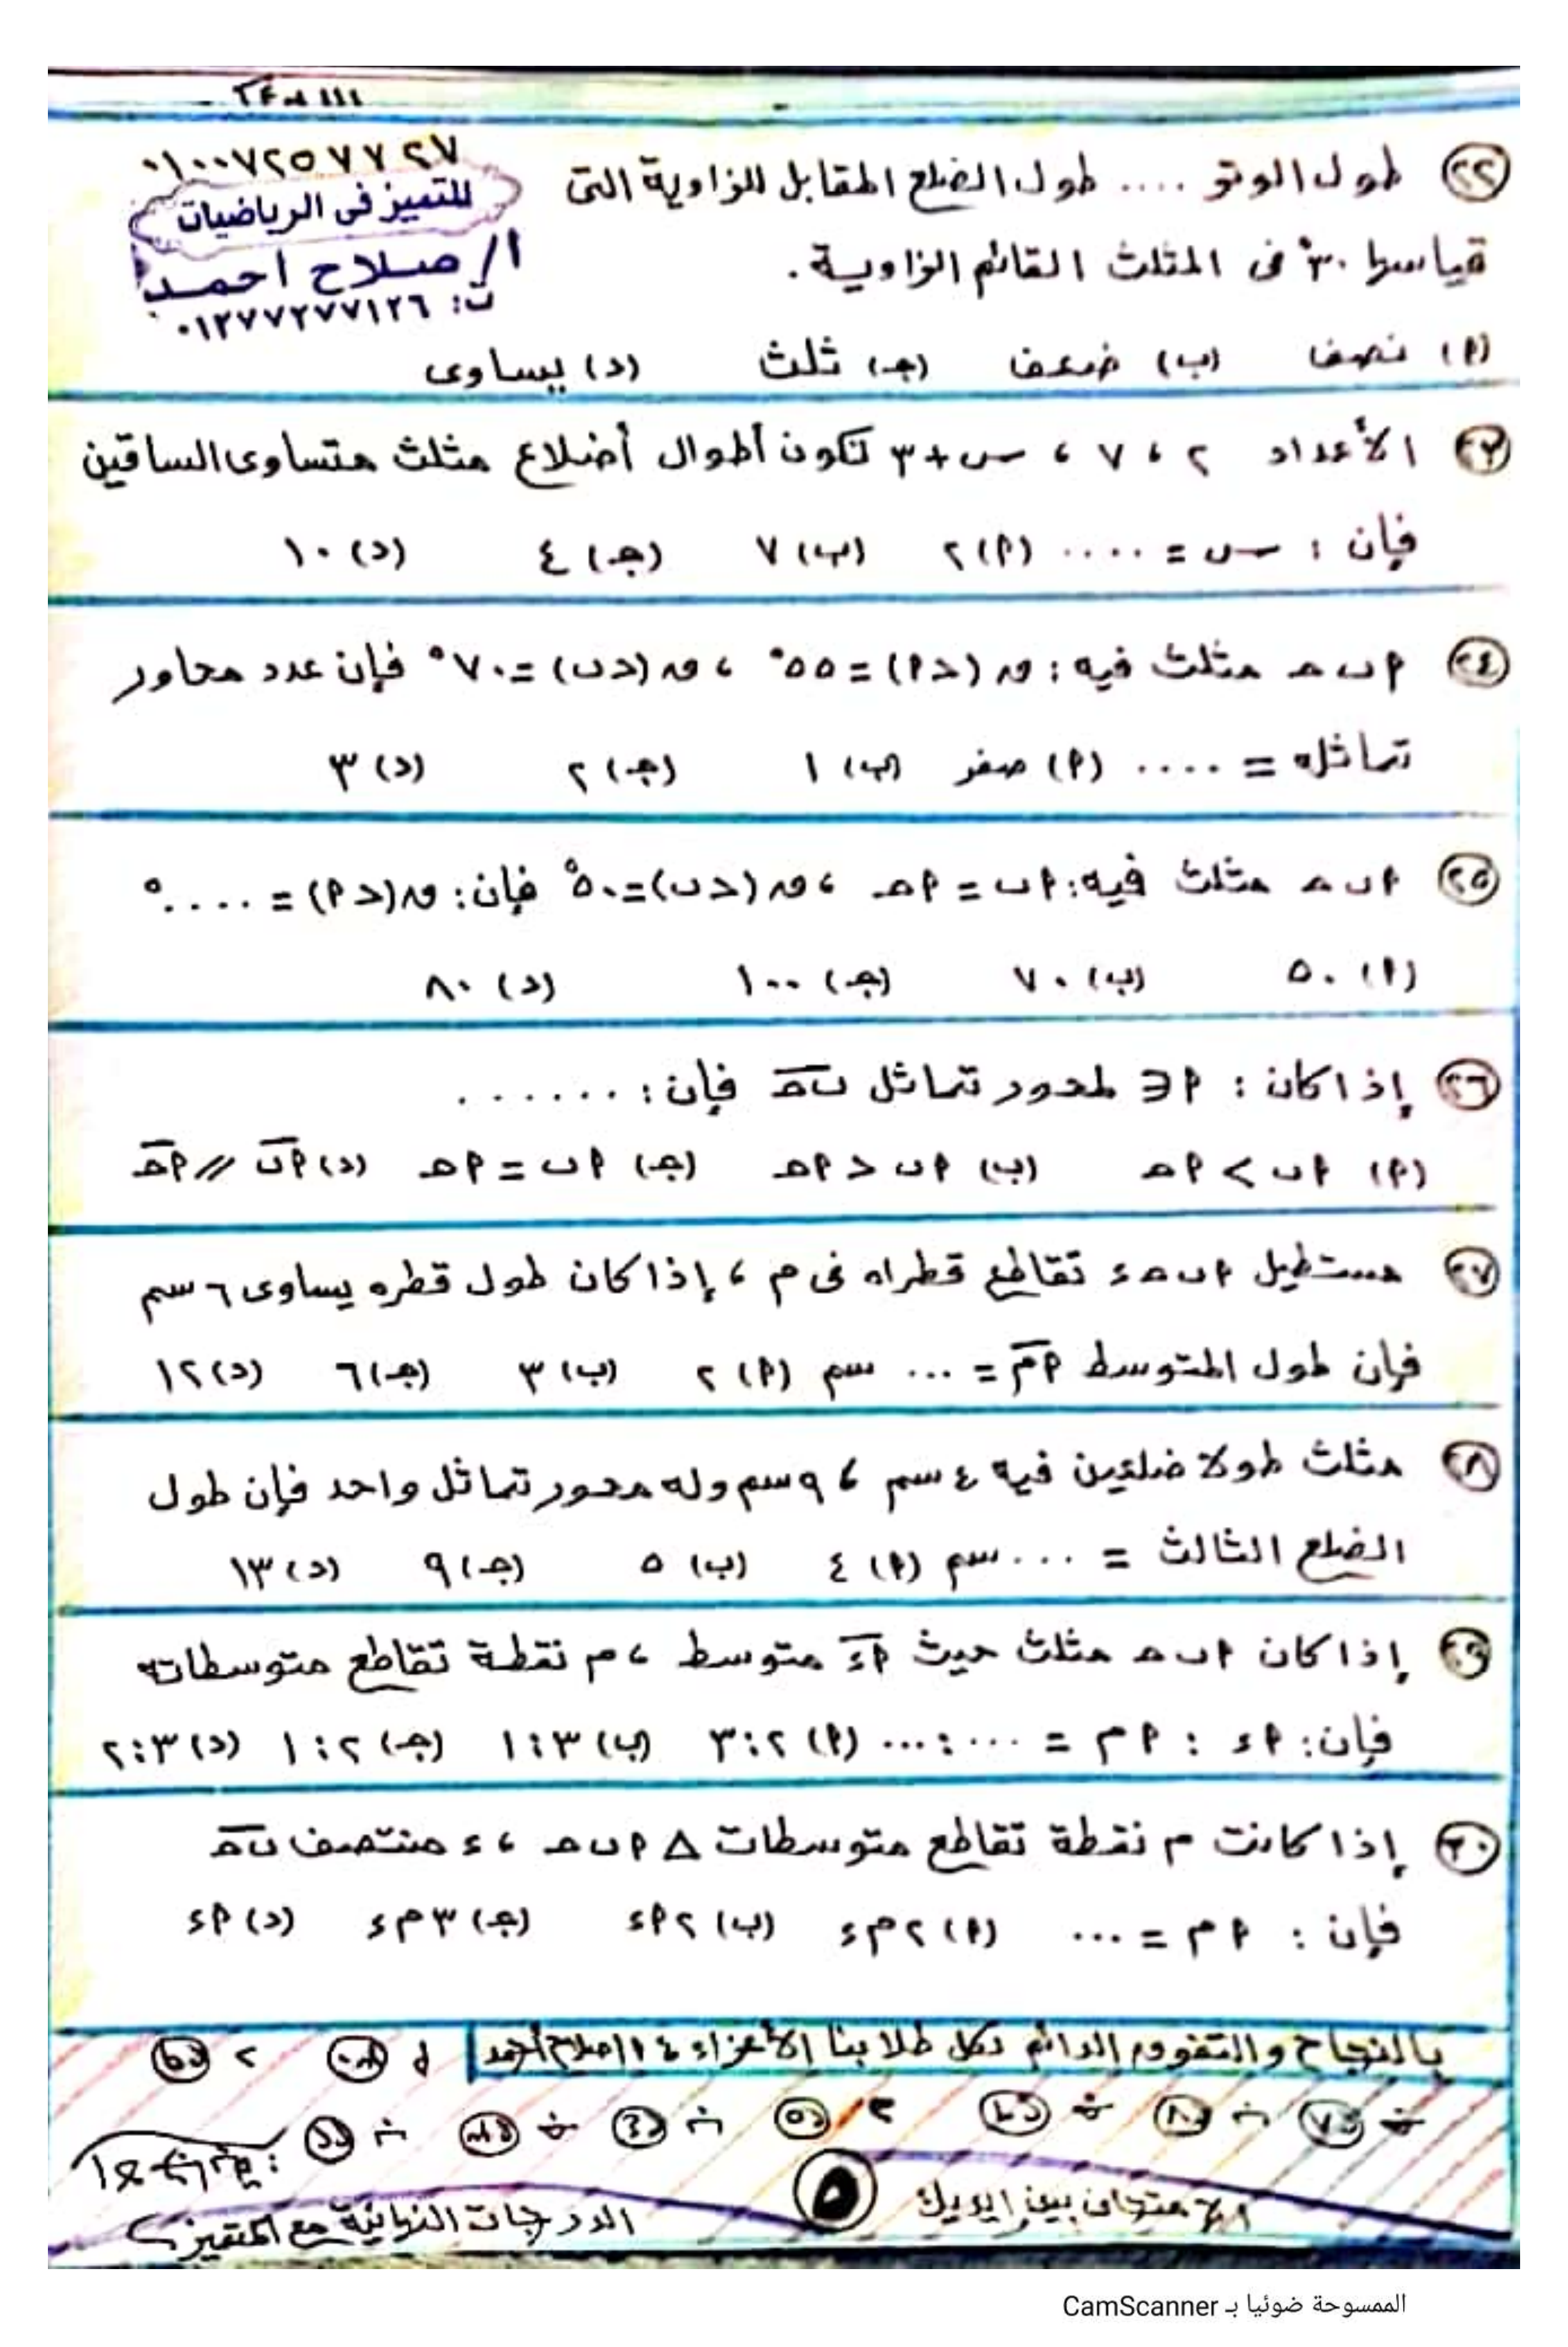 ٠١٠٠٧٢٥٧٧٢٧
للتميز فى الرياضيات
أ/ صلاح احمد
ت: ٠١٢٧٧٢٧٧١٢٦
(٢٢) طول الوتر .... طول الضلع المقابل للزاوية التى
قياسها ٣٠° فى المثلث القائم الزاوية.
(P) نصف (ب) ضعف (جـ) ثلث (د) يساوى
(٢٣) الأعداد ٢ ، ٧ ، س + ٣ تكون أطوال أضلاع مثلث متساوى الساقين
فإن : س = .... (P) ٢ (ب) ٧ (جـ) ٤ (د) ١٠
(٢٤) P ب حـ مثلث فيه : ق (>P) = ٥٥° ، ق (>ب) = ٧٠° فإن عدد محاور
تماثله = .... (P) صفر (ب) ١ (جـ) ٢ (د) ٣
(٢٥) P ب حـ مثلث فيه: P ب = P حـ ، ق (>ب) = ٥٠° فإن: ق (>P) = ....°
(P) ٥٠ (ب) ٧٠ (جـ) ١٠٠ (د) ٨٠
(٢٦) إذا كان : P ∈ لمحور تماثل ب حـ فإن : ......
(P) P ب > P حـ (ب) P ب < P حـ (جـ) P ب = P حـ (د) P ب // P حـ
(٢٧) مستطيل P ب حـ ء تقاطع قطراه فى م ، إذا كان طول قطره يساوى ٦ سم
فإن طول المتوسط P م = ... سم (P) ٢ (ب) ٣ (جـ) ٦ (د) ١٢
(٢٨) مثلث طولا ضلعين فيه ٤ سم ، ٩ سم وله محور تماثل واحد فإن طول
الضلع الثالث = ... سم (P) ٤ (ب) ٥ (جـ) ٩ (د) ١٣
(٢٩) إذا كان P ب حـ مثلث حيث P ء متوسط ، م نقطة تقاطع متوسطاته
فإن: P ء : P م = ...:... (P) ٢ : ٣ (ب) ٣ : ١ (جـ) ٢ : ١ (د) ٣ : ٢
(٣٠) إذا كانت م نقطة تقاطع متوسطات △ P ب حـ ، ء منتصف ب حـ
فإن : P م = ... (P) ٢ م ء (ب) ٢ P ء (جـ) ٣ م ء (د) P ء
بالنجاح والتفوق الدائم لكل طلابنا الأعزاء أ/ صلاح أحمد
الامتحان بين إيديك
(٥)
الدرجات النهائية مع المتميز
الممسوحة ضوئيا بـ CamScanner